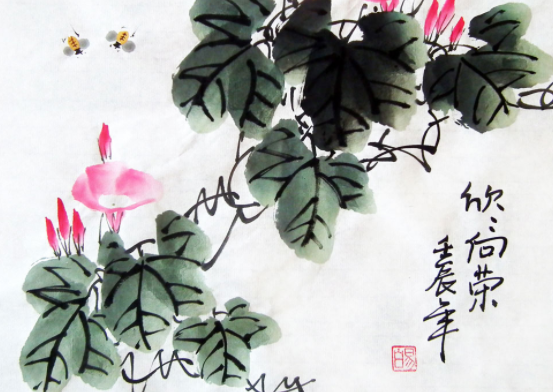 欣〻向荣
壬辰年